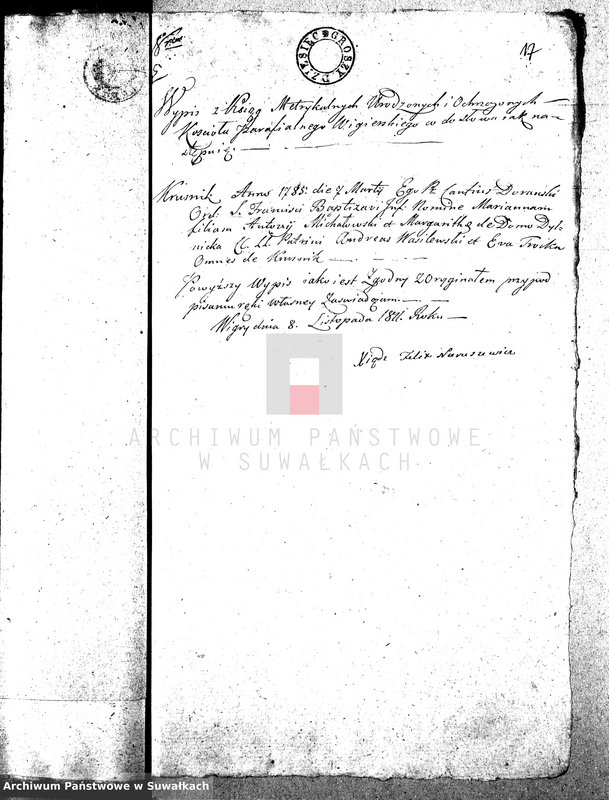 17
DZIESIĘC GROSZY
Wypis z Ksiąg Metrykalnych Urodzonych i Ochrzczonych
Kościoła Parafialnego Wigierskiego co do słowa iak na-
stępuię.
Krusnik Anno 1785 die 7 Marty Ego Cantius Doranski
Ord: S. Francisci Baptizavi Inf. Nomine Mariannam
filiam Antonij Michałowski et Margarithæ de Domo Dyb-
nicka C. LL. Patrini Andreas Wasilewski et Eva Trocka
Omnes de Krusnik
Powyższy Wypis iako iest Zgodny z Oryginałem przy pod
pisaniu ręki własney Zaświadczam.
Wigry dnia 8. Listopada 1811. Roku
Xiądz Felix Naruszewicz
ARCHIWUM PAŃSTWOWE
W SUWAŁKACH
Archiwum Państwowe w Suwałkach